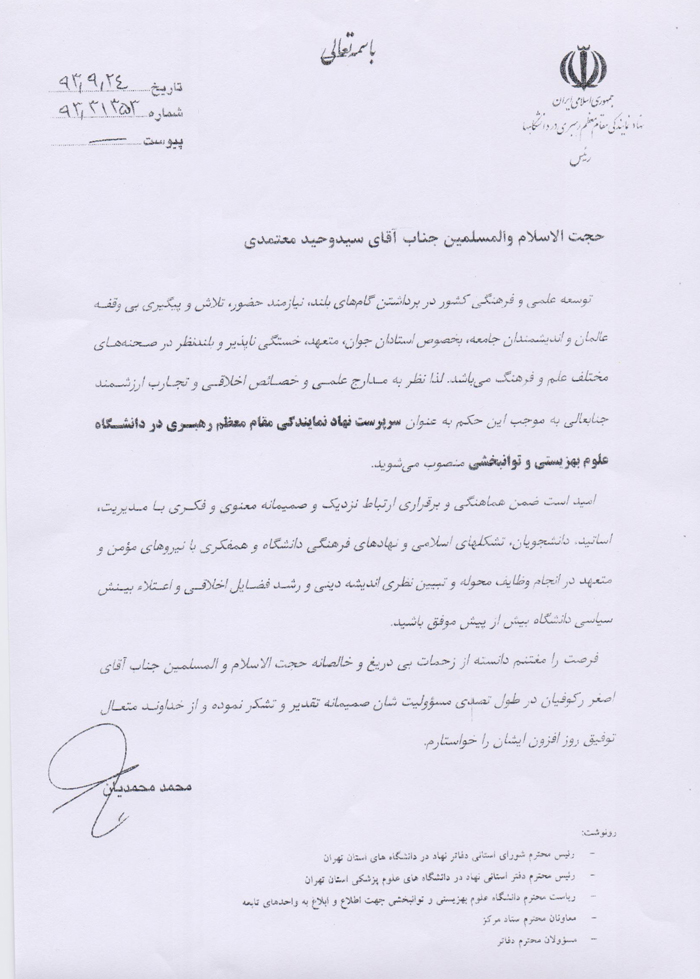 باسمه تعالی
جمهوری اسلامی ایران
نهاد نمایندگی مقام معظم رهبری در دانشگاهها
رئیس
تاریخ ۹۳,۹,۲۴
شماره ۹۳,۳۱۳۵۳
پیوست —
حجت الاسلام والمسلمین جناب آقای سیدوحید معتمدی
توسعه علمی و فرهنگی کشور در برداشتن گام‌های بلند، نیازمند حضور، تلاش و پیگیری بی وقفه
عالمان و اندیشمندان جامعه، بخصوص استادان جوان، متعهد، خستگی ناپذیر و بلندنظر در صحنه‌های
مختلف علم و فرهنگ می‌باشد. لذا نظر به مدارج علمی و خصائص اخلاقی و تجارب ارزشمند
جنابعالی به موجب این حکم به عنوان سرپرست نهاد نمایندگی مقام معظم رهبری در دانشگاه
علوم بهزیستی و توانبخشی منصوب می‌شوید.
امید است ضمن هماهنگی و برقراری ارتباط نزدیک و صمیمانه معنوی و فکری با مدیریت،
اساتید، دانشجویان، تشکلهای اسلامی و نهادهای فرهنگی دانشگاه و همفکری با نیروهای مؤمن و
متعهد در انجام وظایف محوله و تبیین نظری اندیشه دینی و رشد فضایل اخلاقی و اعتلاء بینش
سیاسی دانشگاه بیش از پیش موفق باشید.
فرصت را مغتنم دانسته از زحمات بی دریغ و خالصانه حجت الاسلام و المسلمین جناب آقای
اصغر رکوفیان در طول تصدی مسؤولیت شان صمیمانه تقدیر و تشکر نموده و از خداوند متعال
توفیق روز افزون ایشان را خواستارم.
محمد محمدیان
رونوشت:
- رئیس محترم شورای استانی دفاتر نهاد در دانشگاه های استان تهران
- رئیس محترم دفتر استانی نهاد در دانشگاه های علوم پزشکی استان تهران
- ریاست محترم دانشگاه علوم بهزیستی و توانبخشی جهت اطلاع و ابلاغ به واحدهای تابعه
- معاونان محترم ستاد مرکز
- مسؤولان محترم دفاتر